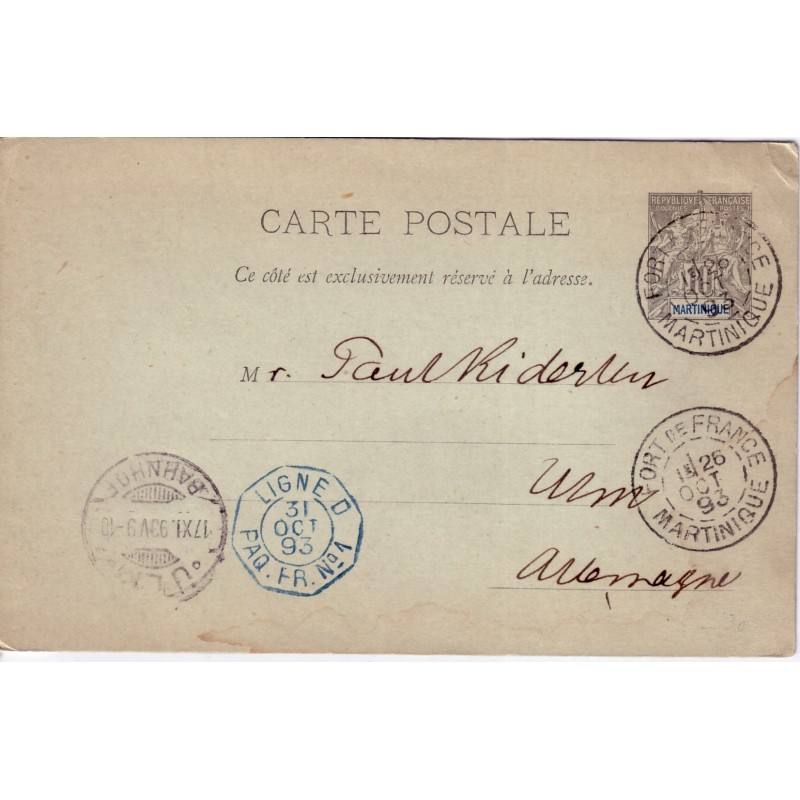 RÉPUBLIQUE FRANÇAISE
COLONIES POSTES
MARTINIQUE
FORT DE FRANCE
26
OCT
93
MARTINIQUE
CARTE POSTALE
Ce côté est exclusivement réservé à l'adresse.
Mr. Paul Kiderlen
Ulm
Allemagne
FORT DE FRANCE
26
OCT
93
MARTINIQUE
LIGNE D
31
OCT
93
PAQ. FR. Nº 1
BAHNHOF
17 XI. 93 V 9-10
ULM
30